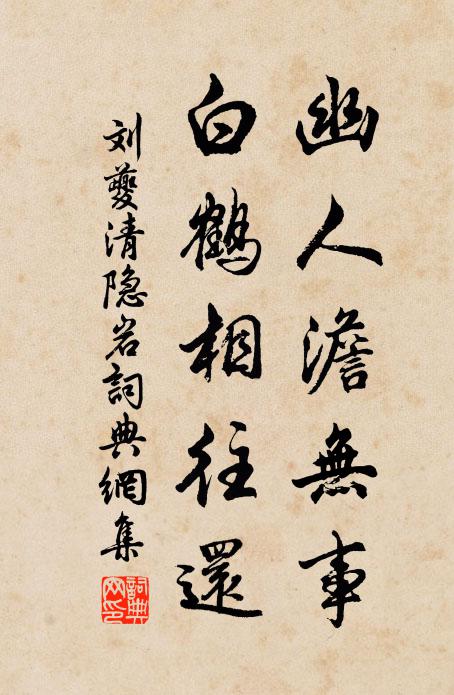 幽人澹無事
白鶴相往還
刘夔清隐岩詞典網集
詞典网印